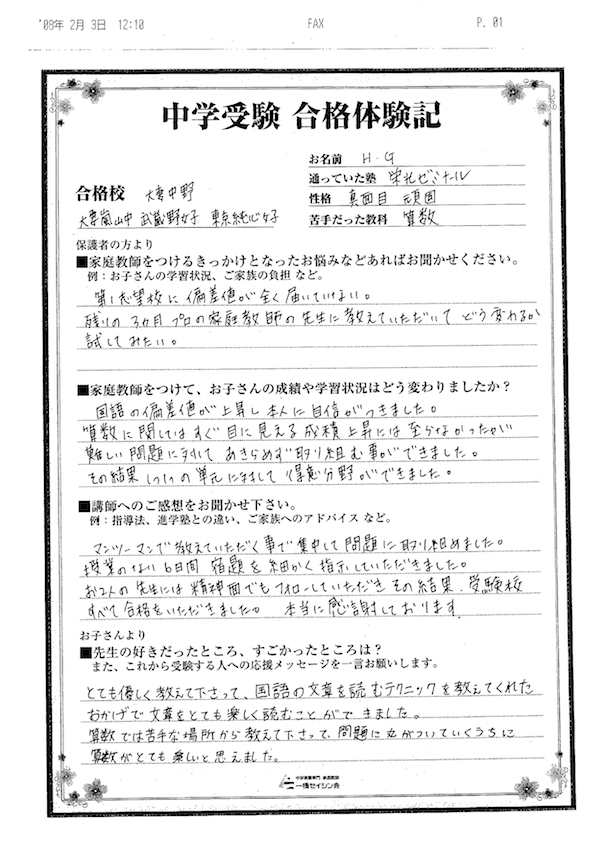 '08年 2月 3日 12:10 FAX P. 01
中学受験 合格体験記
お名前 H・G
通っていた塾 栄光ゼミナール
合格校 大妻中野
性格 真面目 頑固
大妻嵐山中 武蔵野女子 東京純心女子
苦手だった教科 算数
保護者の方より
■家庭教師をつけるきっかけとなったお悩みなどあればお聞かせください。
例:お子さんの学習状況、ご家族の負担 など。
第1志望校に偏差値が全く届いていない。
残りの3ヵ月プロの家庭教師の先生に教えていただいてどう変われるか
試してみたい。
■家庭教師をつけて、お子さんの成績や学習状況はどう変わりましたか?
国語の偏差値が上昇し本人に自信がつきました。
算数に関してはすぐ目に見える成積上昇には至らなかったが
難しい問題に対して あきらめず取り組む事ができました。
その結果 1つ1つの単元に対して得意分野ができました。
■講師へのご感想をお聞かせ下さい。
例:指導法、進学塾との違い、ご家族へのアドバイス など。
マンツーマンで教えていただく事で集中して問題に取り組めました。
授業のない6日間 宿題を細かく指示していただきました。
お2人の先生には精神面でもフォローしていただき その結果、受験校
すべて合格をいただきました。 本当に感謝しております
お子さんより
■先生の好きだったところ、すごかったところは?
また、これから受験する人への応援メッセージを一言お願いします。
とても優しく教えて下さって、国語の文章を読むテクニックを教えてくれた
おかげで文章をとても楽しく読むことができました。
算数では苦手な場所から教えて下さって、問題に丸がついていくうちに
算数がとても楽しいと思えました。
中学受験専門 家庭教師
一橋セイシン会